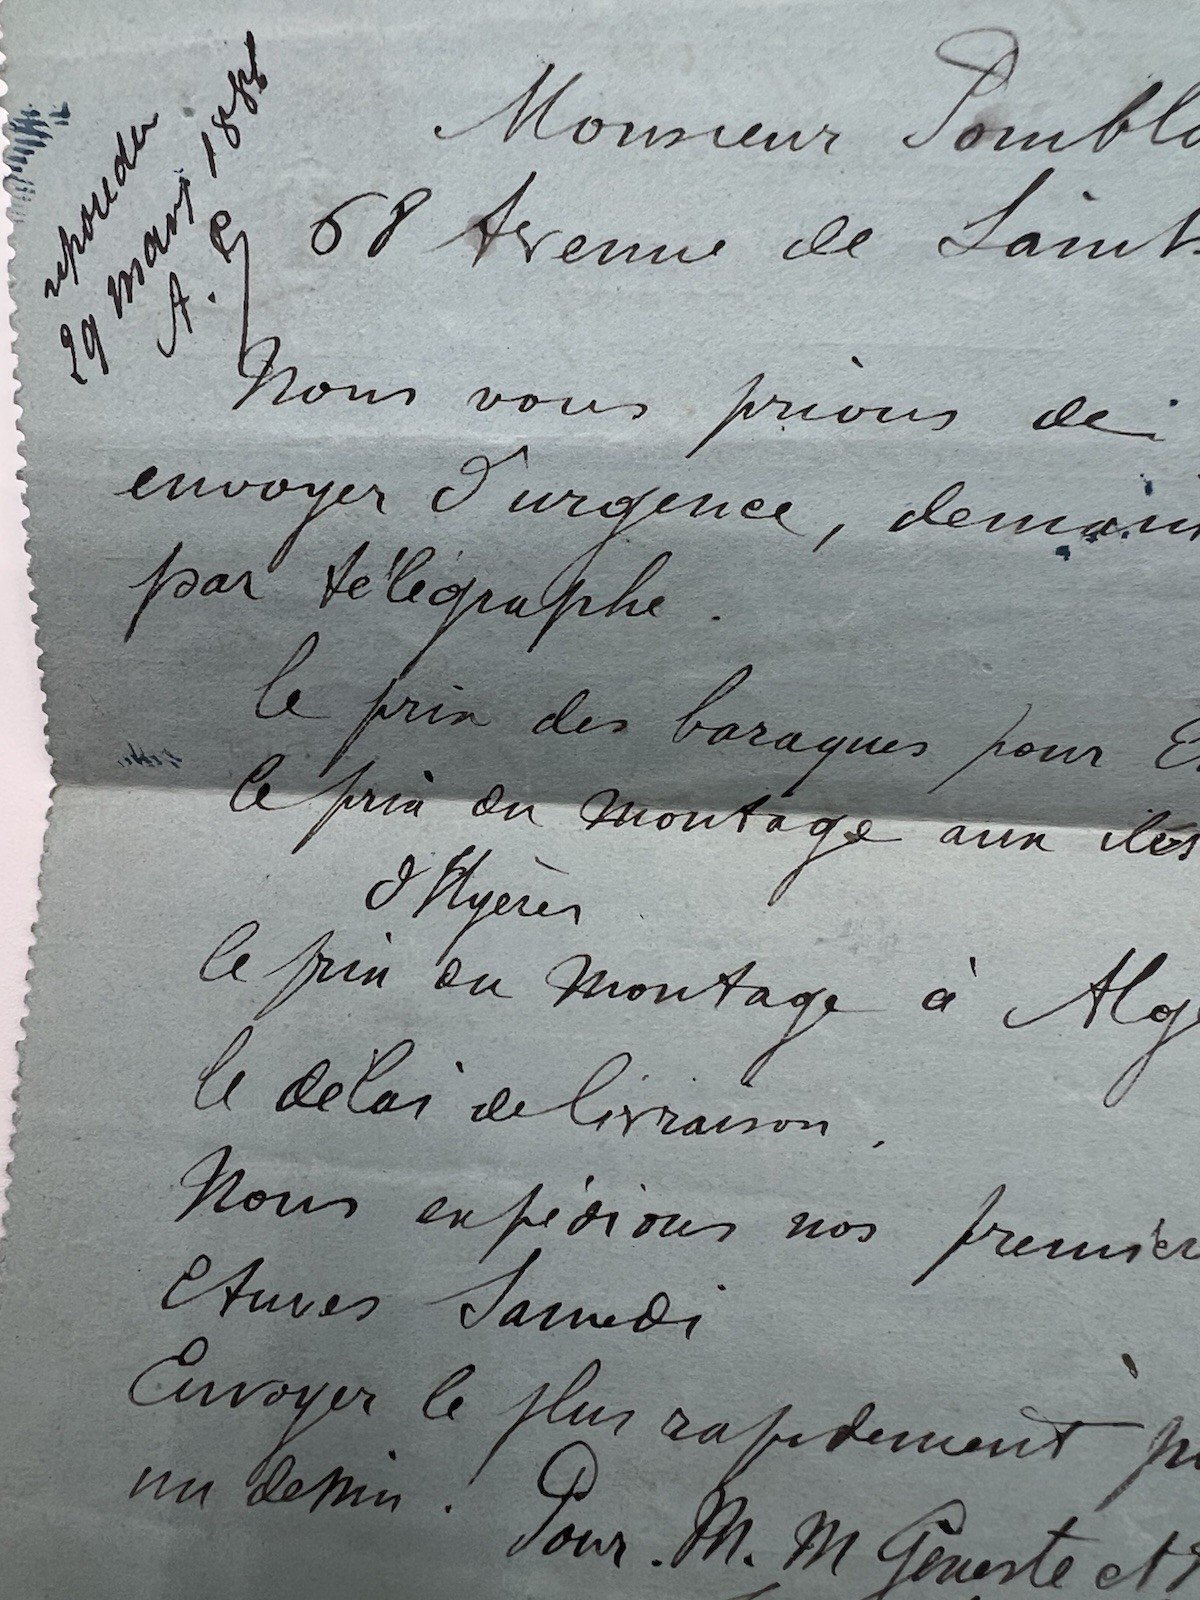 repondu
29 mars 1886
A. P
Monsieur Pombla
68 Avenue de Saint
Nous vous prions de
envoyer d'urgence, deman
par télégraphe.
le prix des baraques pour
le prix du montage aux îles
d'Hyères
le prix du montage à Alge
le délai de livraison.
Nous expédions nos premier
Etuves Samedi
Envoyer le plus rapidement
un dessin. Pour. M. M Geneste et